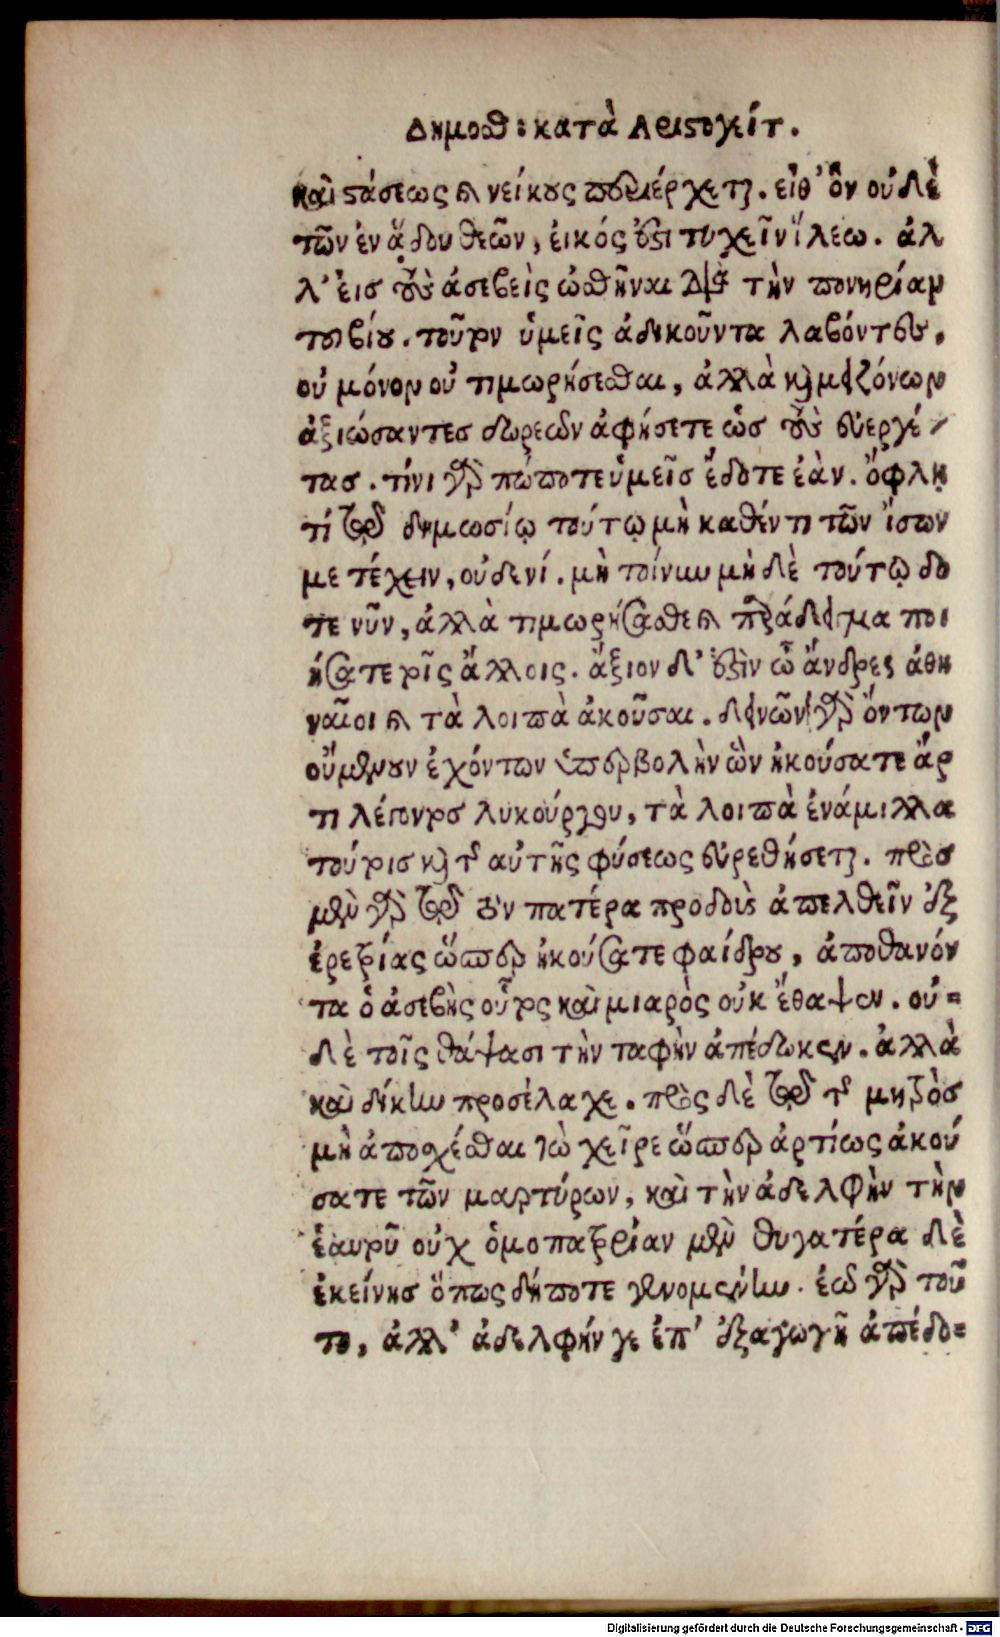 Δημοσθ: κατὰ Αριστογείτ.
καὶ στάσεως καὶ νείκους περιέρχεται. εἶθ' ὃν οὐδὲ
τῶν ἐν ᾅδου θεῶν, ἐικός ἐστι τυχεῖν ἵλεω. ἀλ
λ' ἐις τοὺς ἀσεβεῖς ὠσθῆναι διὰ τὴν πονηρίαν
τοῦ βίου. τοῦτον ὑμεῖς ἀδικοῦντα λαβόντες,
οὐ μόνον οὐ τιμωρήσεσθαι, ἀλλὰ καὶ μειζόνων
ἀξιώσαντες δωρεῶν ἀφήσετε ὡς τοὺς εὐεργέ
τας. τίνι γὰρ πώποτε ὑμεῖς ἔδοτε ἐὰν. ὄφλῃ
τί τῷ δημοσίῳ τούτῳ μὴ καθέντι τῶν ἴσων
μετέχειν, οὐδενί. μὴ τοίνυν μηδὲ τούτῳ δο
τε νῦν, ἀλλὰ τιμωρήσασθε καὶ παράδειγμα ποι
ήσατε τοῖς ἄλλοις. ἄξιον δ' ἐστὶν ὦ ἄνδρες ἀθη
ναῖοι καὶ τὰ λοιπὰ ἀκοῦσαι. δεινῶν γὰρ ὄντων
οὔμενουν ἐχόντων ὑπερβολὴν ὧν ἠκούσατε ἄρ
τι λέγοντος λυκούργου, τὰ λοιπὰ ἐνάμιλλα
τούτοις καὶ τῆς αὐτῆς φύσεως εὑρεθήσεται. πρὸς
μὲν γὰρ τῷ τὸν πατέρα προδοὺς ἀπελθεῖν ἐξ
ἐρετρίας ὥσπερ ἠκούσατε φαίδρου, ἀποθανόν
τα ὁ ἀσεβὴς οὗτος καὶ μιαρὸς οὐκ ἔθαψεν. οὐ=
δὲ τοῖς θάψασι τὴν ταφὴν ἀπέδωκεν. ἀλλὰ
καὶ δίκην προσέλαχε. πρὸς δὲ τῷ τῆς μητρὸς
μὴ ἀποσχέσθαι τὼ χεῖρε ὥσπερ ἀρτίως ἀκού
σατε τῶν μαρτύρων, καὶ τὴν ἀδελφὴν τὴν
ἑαυτοῦ οὐχ ὁμοπατρίαν μὲν θυγατέρα δὲ
ἐκείνης ὅπως δήποτε γενομένην. ἐῶ γὰρ τοῦ
το, ἀλλ' ἀδελφήν γε ἐπ' ἐξαγωγῇ ἀπέδο=
Digitalisierung gefördert durch die Deutsche Forschungsgemeinschaft - DFG